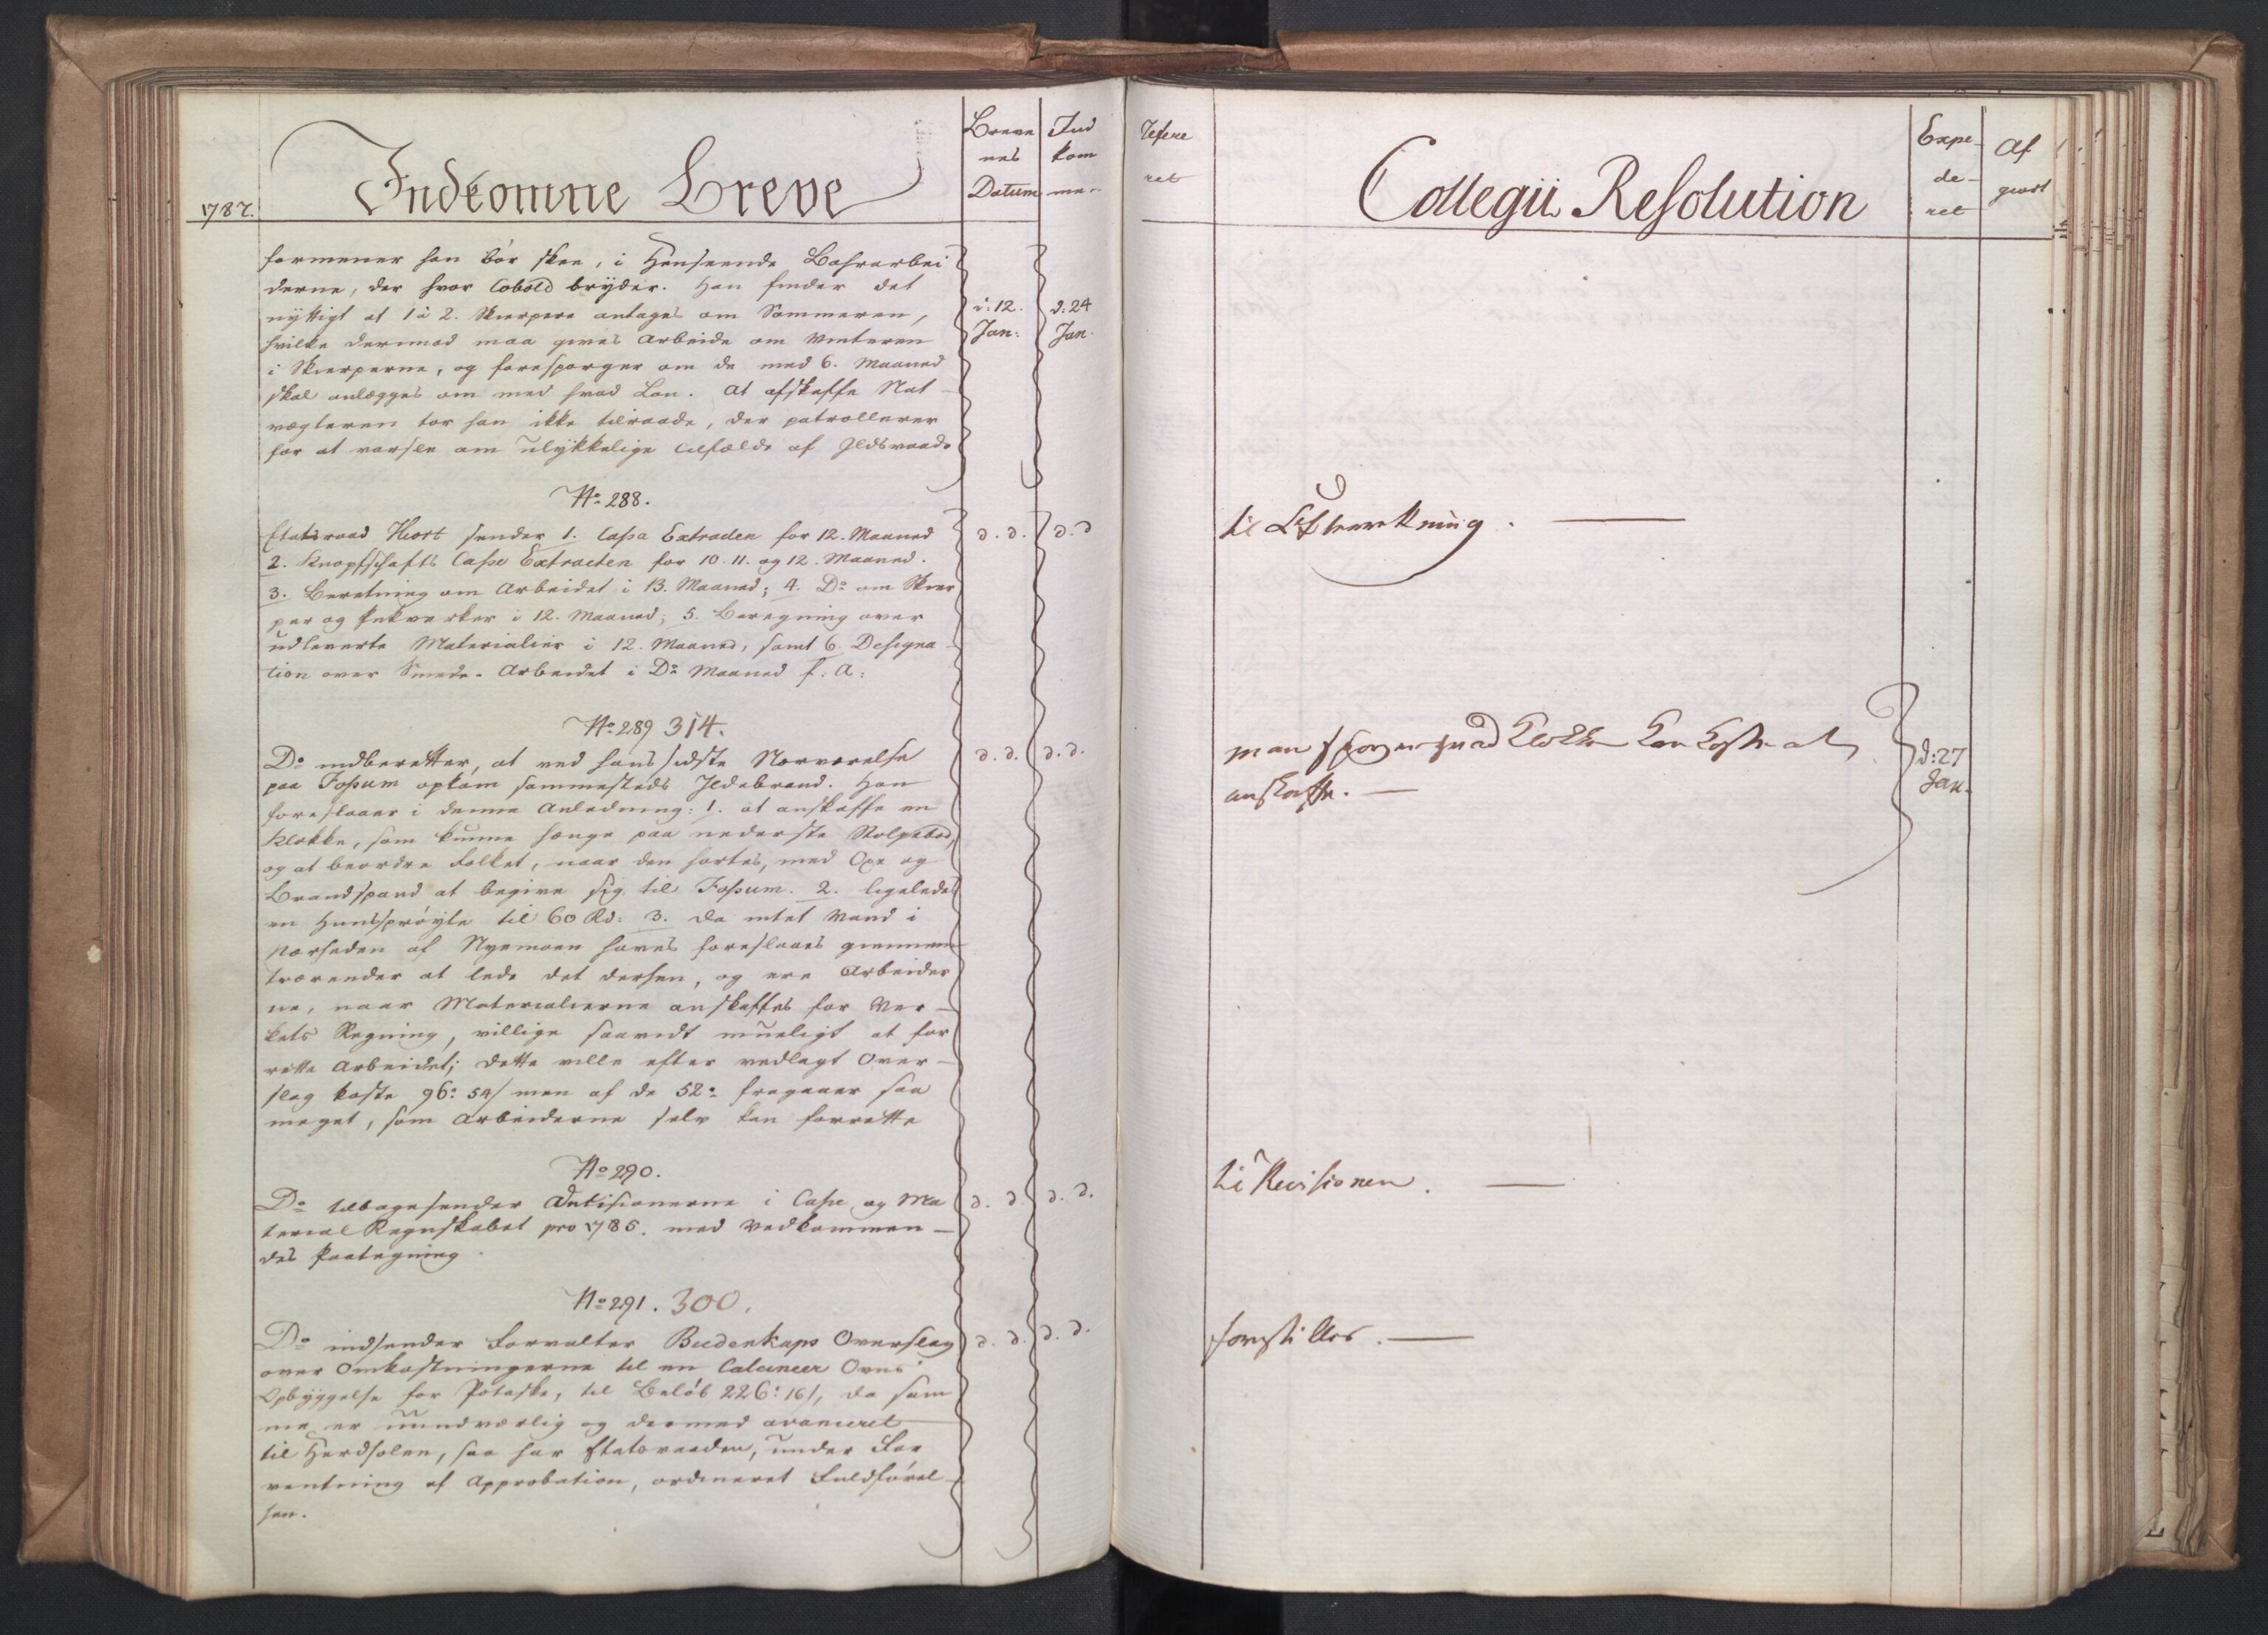 1787.
Indkomne Breve
Breve
nes
Datum
Ind
kom
me-
formener han bør skee, i Henseende Bohrarbei
derne, der hvor Cobold bryder. Han finder det
nyttigt at 1 à 2. Skierpere antages om Sommeren,
d: 12.
Jan:
d: 24
Jan.
hvilke derimod maa gives Arbeide om Vinteren
i Skierperne, og forespørger om de med 6. Maaned
skal anlægges om med hvad Løn. At afskaffe Nat-
vægteren tør han ikke tilraade, der patrollerer
for at varsle om ulykkelige Tilfælde af Ildsvaade
No. 288.
Etatsraad Hiort sender 1. Cassa Extracten for 12. Maaned
d. d.
d. d
2. Knapschafts Casse Extracten for 10. 11. og 12. Maaned.
3. Beretning om Arbeidet i 13. Maaned; 4. Do om Skier
per og Pukverker i 12. Maaned; 5. Beregning over
udleverte Materialier i 12. Maaned, samt 6. Designa-
tion over Smede-Arbeidet i Do Maaned f. A:
No. 289 314.
Do indberetter, at ved hans sidste Nærværelse
d. d.
d. d.
paa Fossum opkom sammesteds Ildebrand. Han
foreslaaer i denne Anledning: 1. at anskaffe en
Klokke, som kunne hænge paa nederste Stolpebod,
og at beordre Folket, naar den hørtes, med Øxe og
Brandspand at begive sig til Fossum. 2. ligeledes
en Haandsprøyte til 60 Rd: 3. da intet Vand i
Nærheden af Nyemoen haves foreslaaes giennem
trærender at lede det derhen, og ere Arbeider
ne, naar Materialierne anskaffes for Ver-
kets Regning, villige saavidt mueligt at for
rette Arbeidet; dette ville efter vedlagt Over-
slag koste 96: 54/ men af de 52: fragaaer saa
meget, som Arbeiderne selv kan forrette
No. 290.
Do tilbagesender Antisionerne i Casse og Ma
d. d.
d. d.
terial Regnskabet pro 1786. med Vedkommen-
des Paategning.
No. 291. 300.
Do indsender Forvalter Budenkaps Overslag
d. d.
d. d.
over Omkostningerne til en Calcineer Ovns
Opbyggelse for Potaske, til Beløb 226: 16/, da sam
me er uundværlig og dermed avanceret
til Herdsolen, saa har Etatsraaden, under For
ventning af Approbation, ordineret Fuldførel-
sen.
Refere
ret
Collegii Resolution
Expe-
de-
ret
Af
giort
til Efterretning.
man spørger hvad Klokken kan koste at
anskaffe.
d: 27
Jan.
til Revisionen.
forestilles.